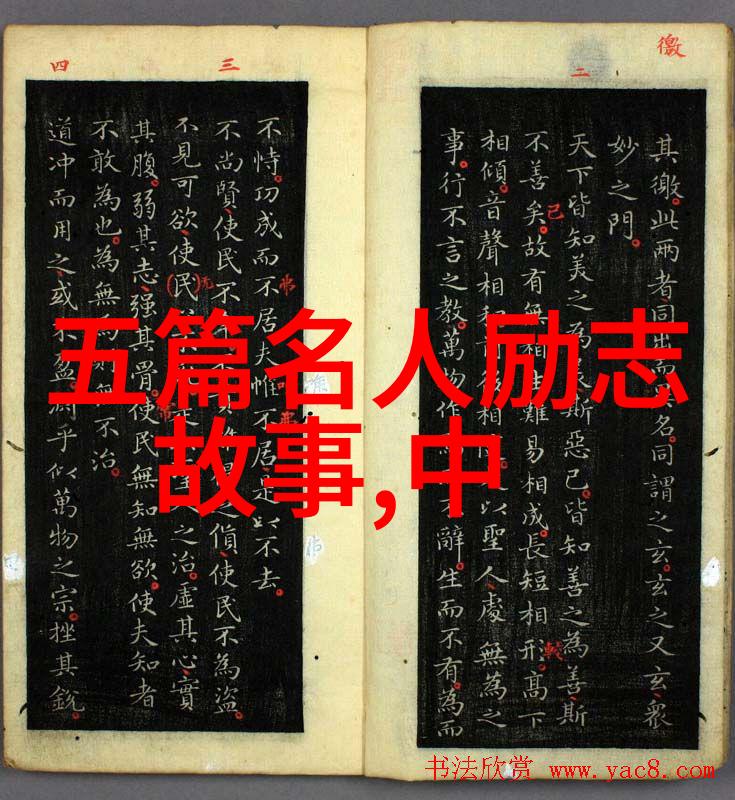 徼
二
其徼。此两者同出而名。同謂之玄。玄之又玄。衆
妙之門。
天下皆知美之為斯惡已。皆知善之為善斯
不善矣。故有無相生難易相成。長短相形。高下
相傾。音聲相和前後相以聖人處無為之
事。行不言之教。萬物作不辭。生而不有。為而
三
四
不恃。功成而不居夫惟不居是以不去。
不尚賢使民不之貨使民不為盜。
不見可欲使民之治。虛其心實
其腹。弱其志强其骨。使民無知無欲。使夫知者
不敢為也。為無為則無不治。
道冲而用之或不盈。淵乎似萬物之宗。挫其銳
五篇名人励志
故事,中
书法欣赏 www.yac8.com